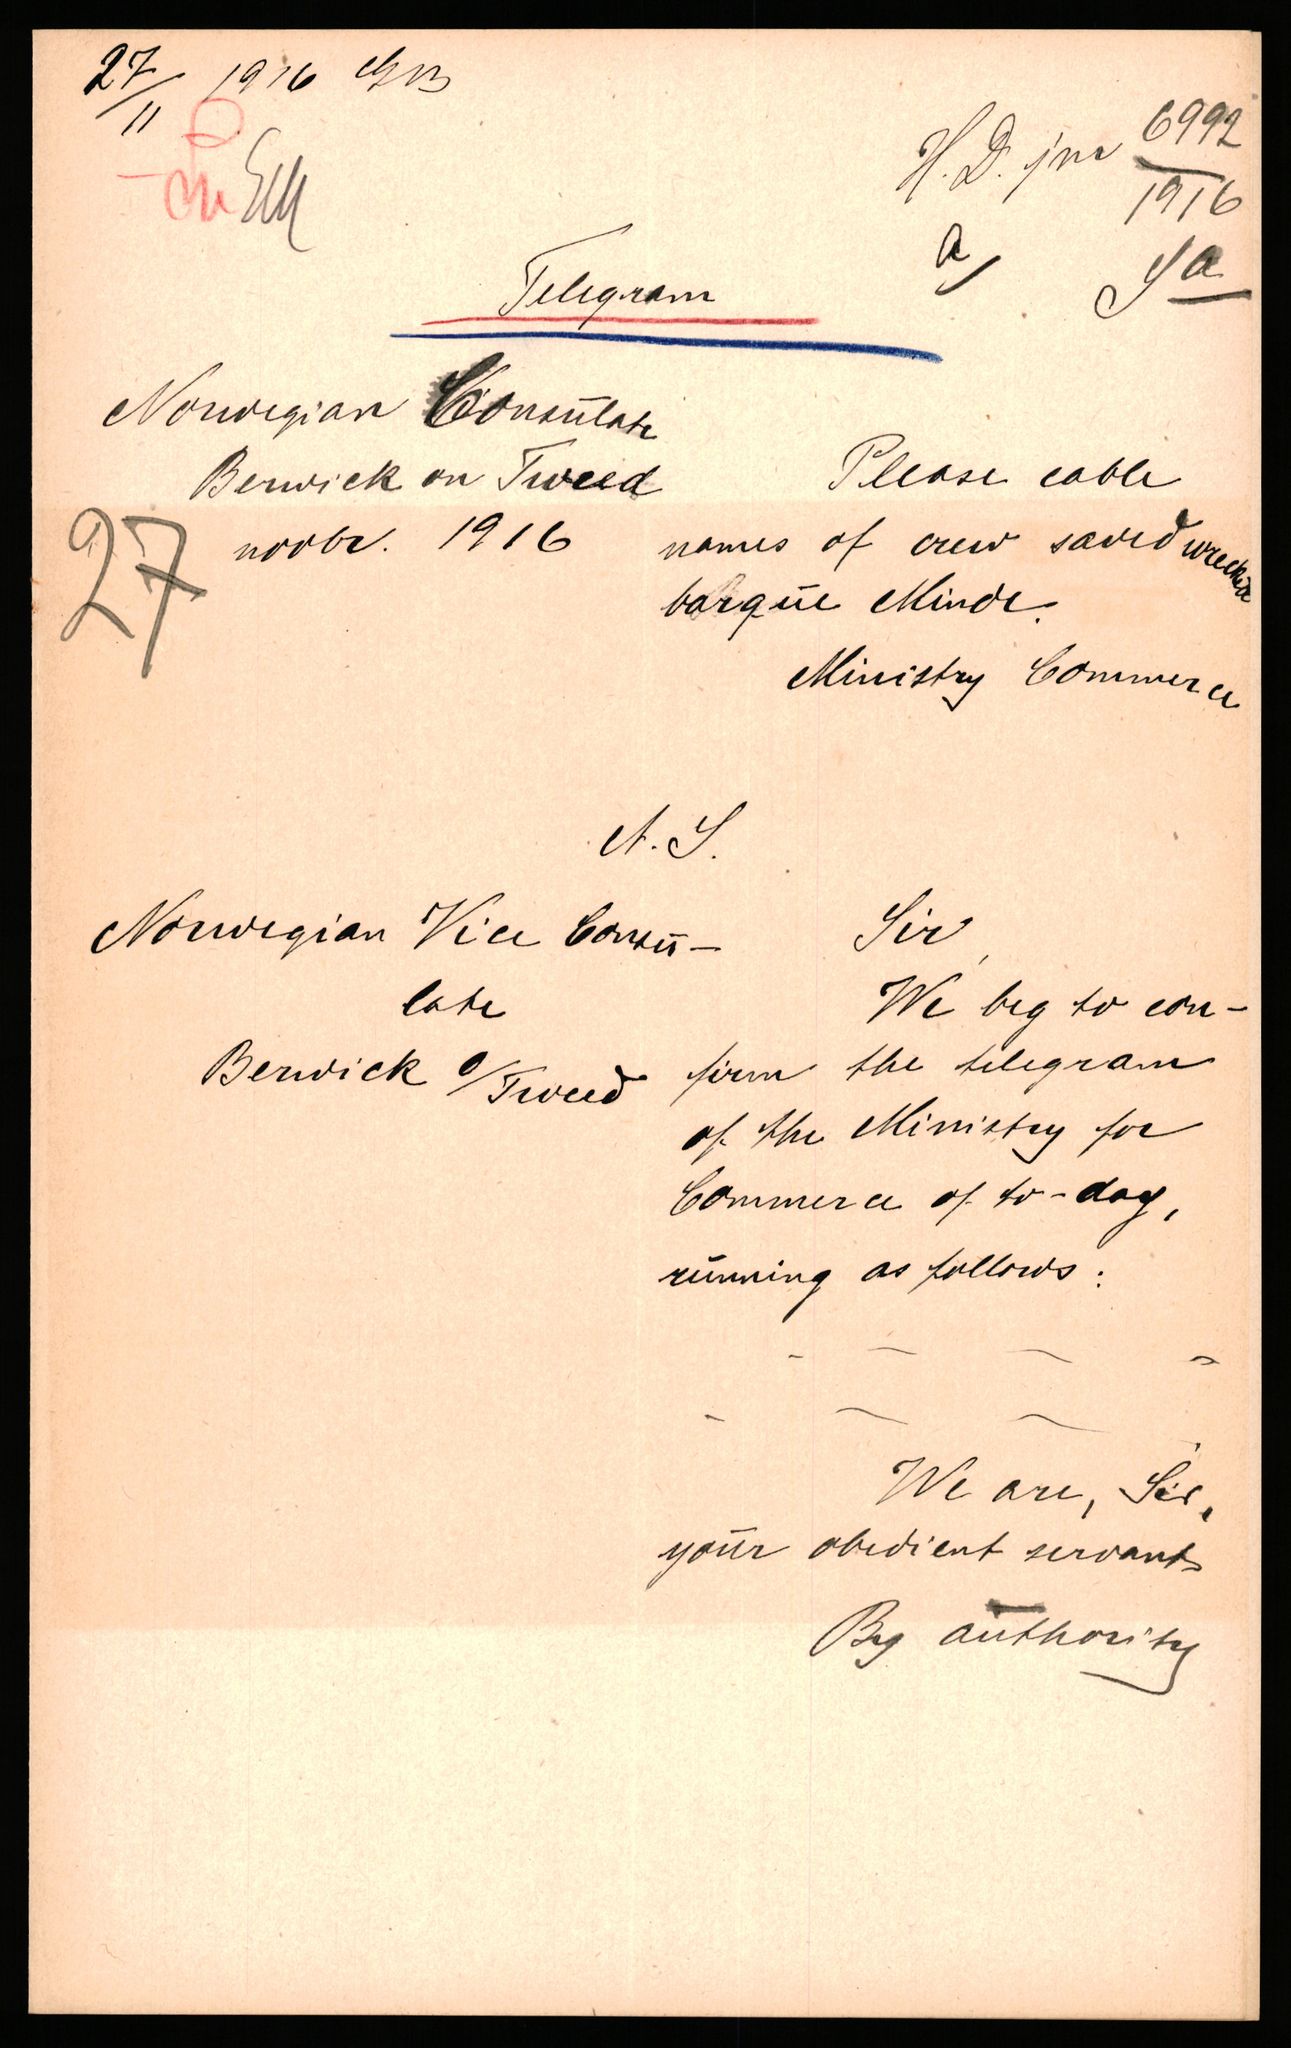 27/11 1916
H. D. jnr 6992
1916
a/
Telegram
Norwegian Consulate
Berwick on Tweed
27 novbr. 1916
Please cable
names of crew saved wrecked
barque Minde.
Ministry Commerce
A. S.
Norwegian Vice Consu-
late
Berwick o/Tweed
Sir,
We beg to con-
firm the telegram
of the Ministry for
Commerce of to-day,
running as follows:
We are, Sir,
your obedient servants
By authority